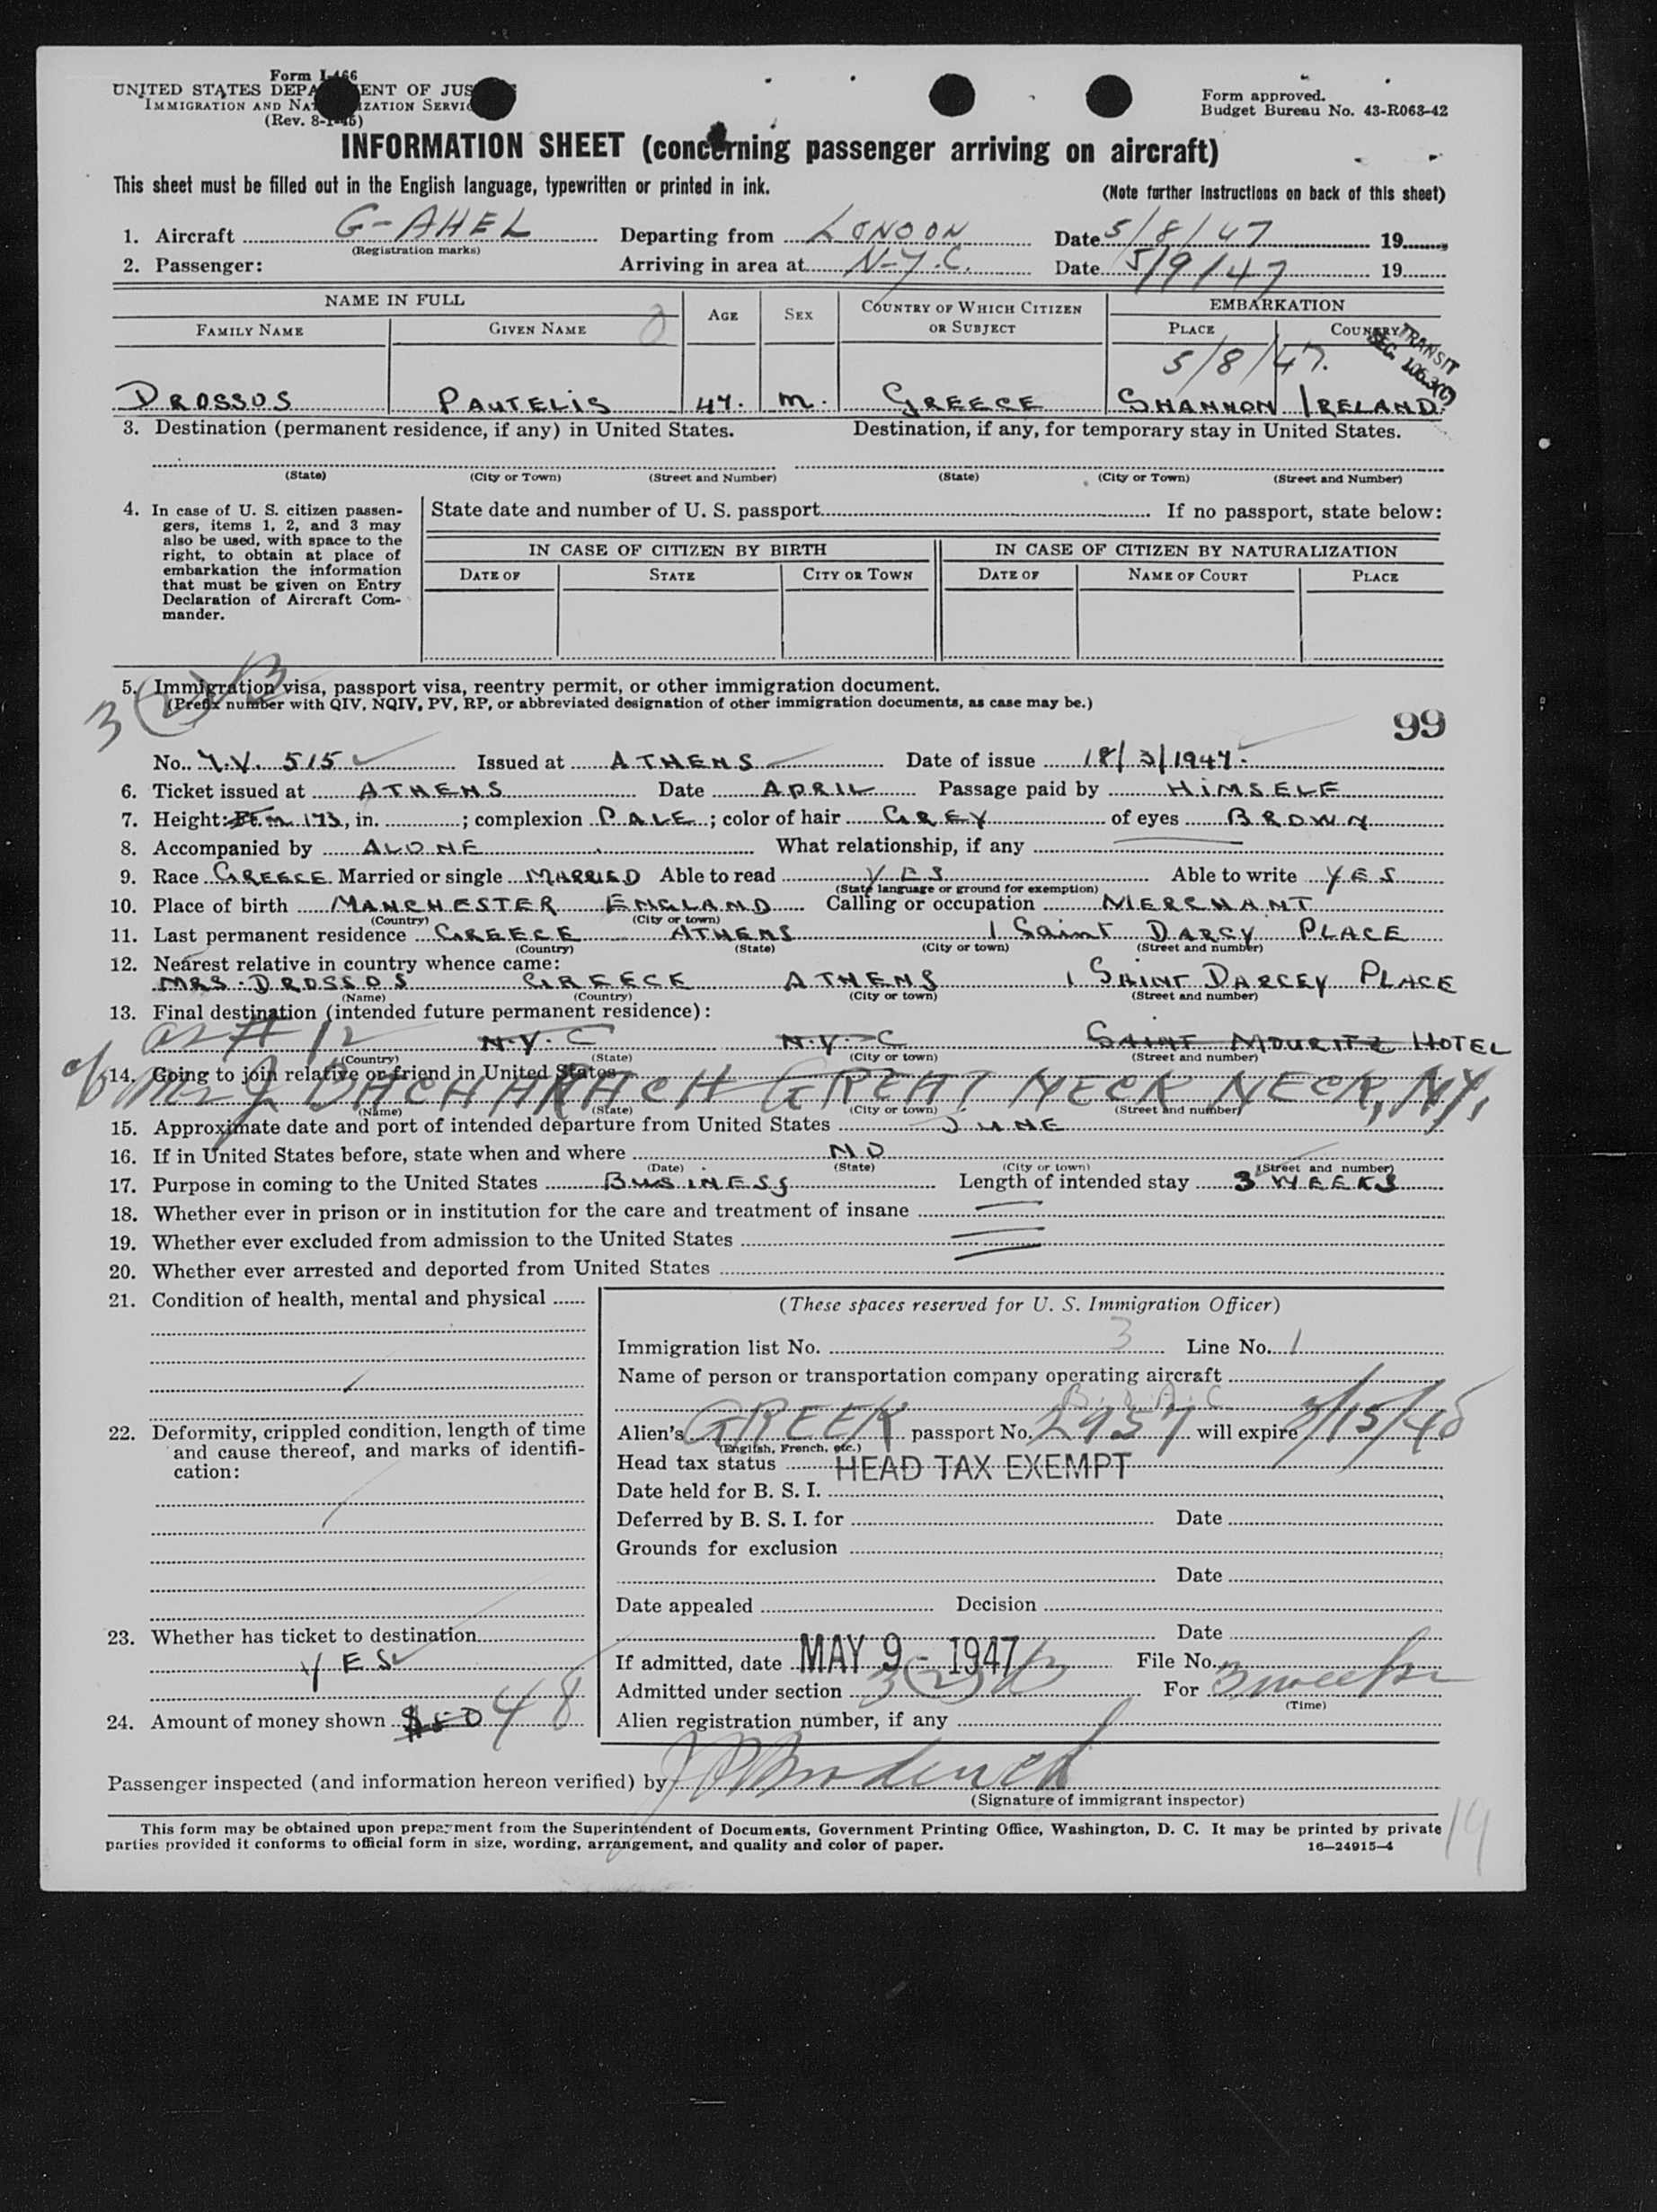 Form I-466
UNITED STATES DEPARTMENT OF JUSTICE
IMMIGRATION AND NATURALIZATION SERVICE
(Rev. 8-1-45)
Form approved.
Budget Bureau No. 43-R063-42
INFORMATION SHEET (concerning passenger arriving on aircraft)
This sheet must be filled out in the English language, typewritten or printed in ink.
(Note further instructions on back of this sheet)
1. Aircraft G-AHEL Departing from LONDON Date 5/8/47 19
(Registration marks)
2. Passenger: Arriving in area at N-Y.C. Date 5/9/47 19
NAME IN FULL AGE SEX COUNTRY OF WHICH CITIZEN OR SUBJECT EMBARKATION
FAMILY NAME GIVEN NAME PLACE COUNTRY
TRANSIT
SEC. 106.3(7)
5/8/47.
DROSSOS PAUTELIS 47. M. GREECE SHANNON IRELAND.
3. Destination (permanent residence, if any) in United States. Destination, if any, for temporary stay in United States.
(State) (City or Town) (Street and Number) (State) (City or Town) (Street and Number)
4. In case of U. S. citizen passengers, items 1, 2, and 3 may also be used, with space to the right, to obtain at place of embarkation the information that must be given on Entry Declaration of Aircraft Commander.
State date and number of U. S. passport If no passport, state below:
IN CASE OF CITIZEN BY BIRTH IN CASE OF CITIZEN BY NATURALIZATION
DATE OF STATE CITY OR TOWN DATE OF NAME OF COURT PLACE
5. Immigration visa, passport visa, reentry permit, or other immigration document.
(Prefix number with QIV, NQIV, PV, RP, or abbreviated designation of other immigration documents, as case may be.)
3(2)
99
No. 515 Issued at ATHENS Date of issue 18/3/1947.
6. Ticket issued at ATHENS Date APRIL Passage paid by HIMSELF
7. Height: Ft. m 173, in. ; complexion PALE ; color of hair GREY of eyes BROWN
8. Accompanied by ALONE What relationship, if any
9. Race GREECE Married or single MARRIED Able to read YES Able to write YES
(State language or ground for exemption)
10. Place of birth MANCHESTER ENGLAND Calling or occupation MERCHANT
(Country) (City or town)
11. Last permanent residence GREECE ATHENS 1 Saint DARCY PLACE
(Country) (State) (City or town) (Street and number)
12. Nearest relative in country whence came:
MRS. DROSSOS GREECE ATHENS 1 SAINT DARCEY PLACE
(Name) (Country) (City or town) (Street and number)
13. Final destination (intended future permanent residence):
as # 12 N.Y.C N.Y.C SAINT MOURITZ HOTEL
(Country) (State) (City or town) (Street and number)
14. Going to join relative or friend in United States
c/o Mr J BACHARACH GREAT NECK NECK, NY,
(Name) (State) (City or town) (Street and number)
15. Approximate date and port of intended departure from United States JUNE
16. If in United States before, state when and where NO
(Date) (State) (City or town) (Street and number)
17. Purpose in coming to the United States BUSINESS Length of intended stay 3 WEEKS
18. Whether ever in prison or in institution for the care and treatment of insane
19. Whether ever excluded from admission to the United States
20. Whether ever arrested and deported from United States
21. Condition of health, mental and physical
22. Deformity, crippled condition, length of time and cause thereof, and marks of identification:
23. Whether has ticket to destination
YES
24. Amount of money shown $50 48
(These spaces reserved for U. S. Immigration Officer)
Immigration list No. 3 Line No. 1
Name of person or transportation company operating aircraft
Alien's GREEK passport No. 2957 will expire 3/15/48
(English, French, etc.)
Head tax status HEAD TAX EXEMPT
Date held for B. S. I.
Deferred by B. S. I. for Date
Grounds for exclusion
Date
Date appealed Decision
Date
If admitted, date MAY 9 - 1947 File No.
Admitted under section 3(2) For 3 weeks
(Time)
Alien registration number, if any
Passenger inspected (and information hereon verified) by
(Signature of immigrant inspector)
This form may be obtained upon prepayment from the Superintendent of Documents, Government Printing Office, Washington, D. C. It may be printed by private
parties provided it conforms to official form in size, wording, arrangement, and quality and color of paper.
16—24915-4
14